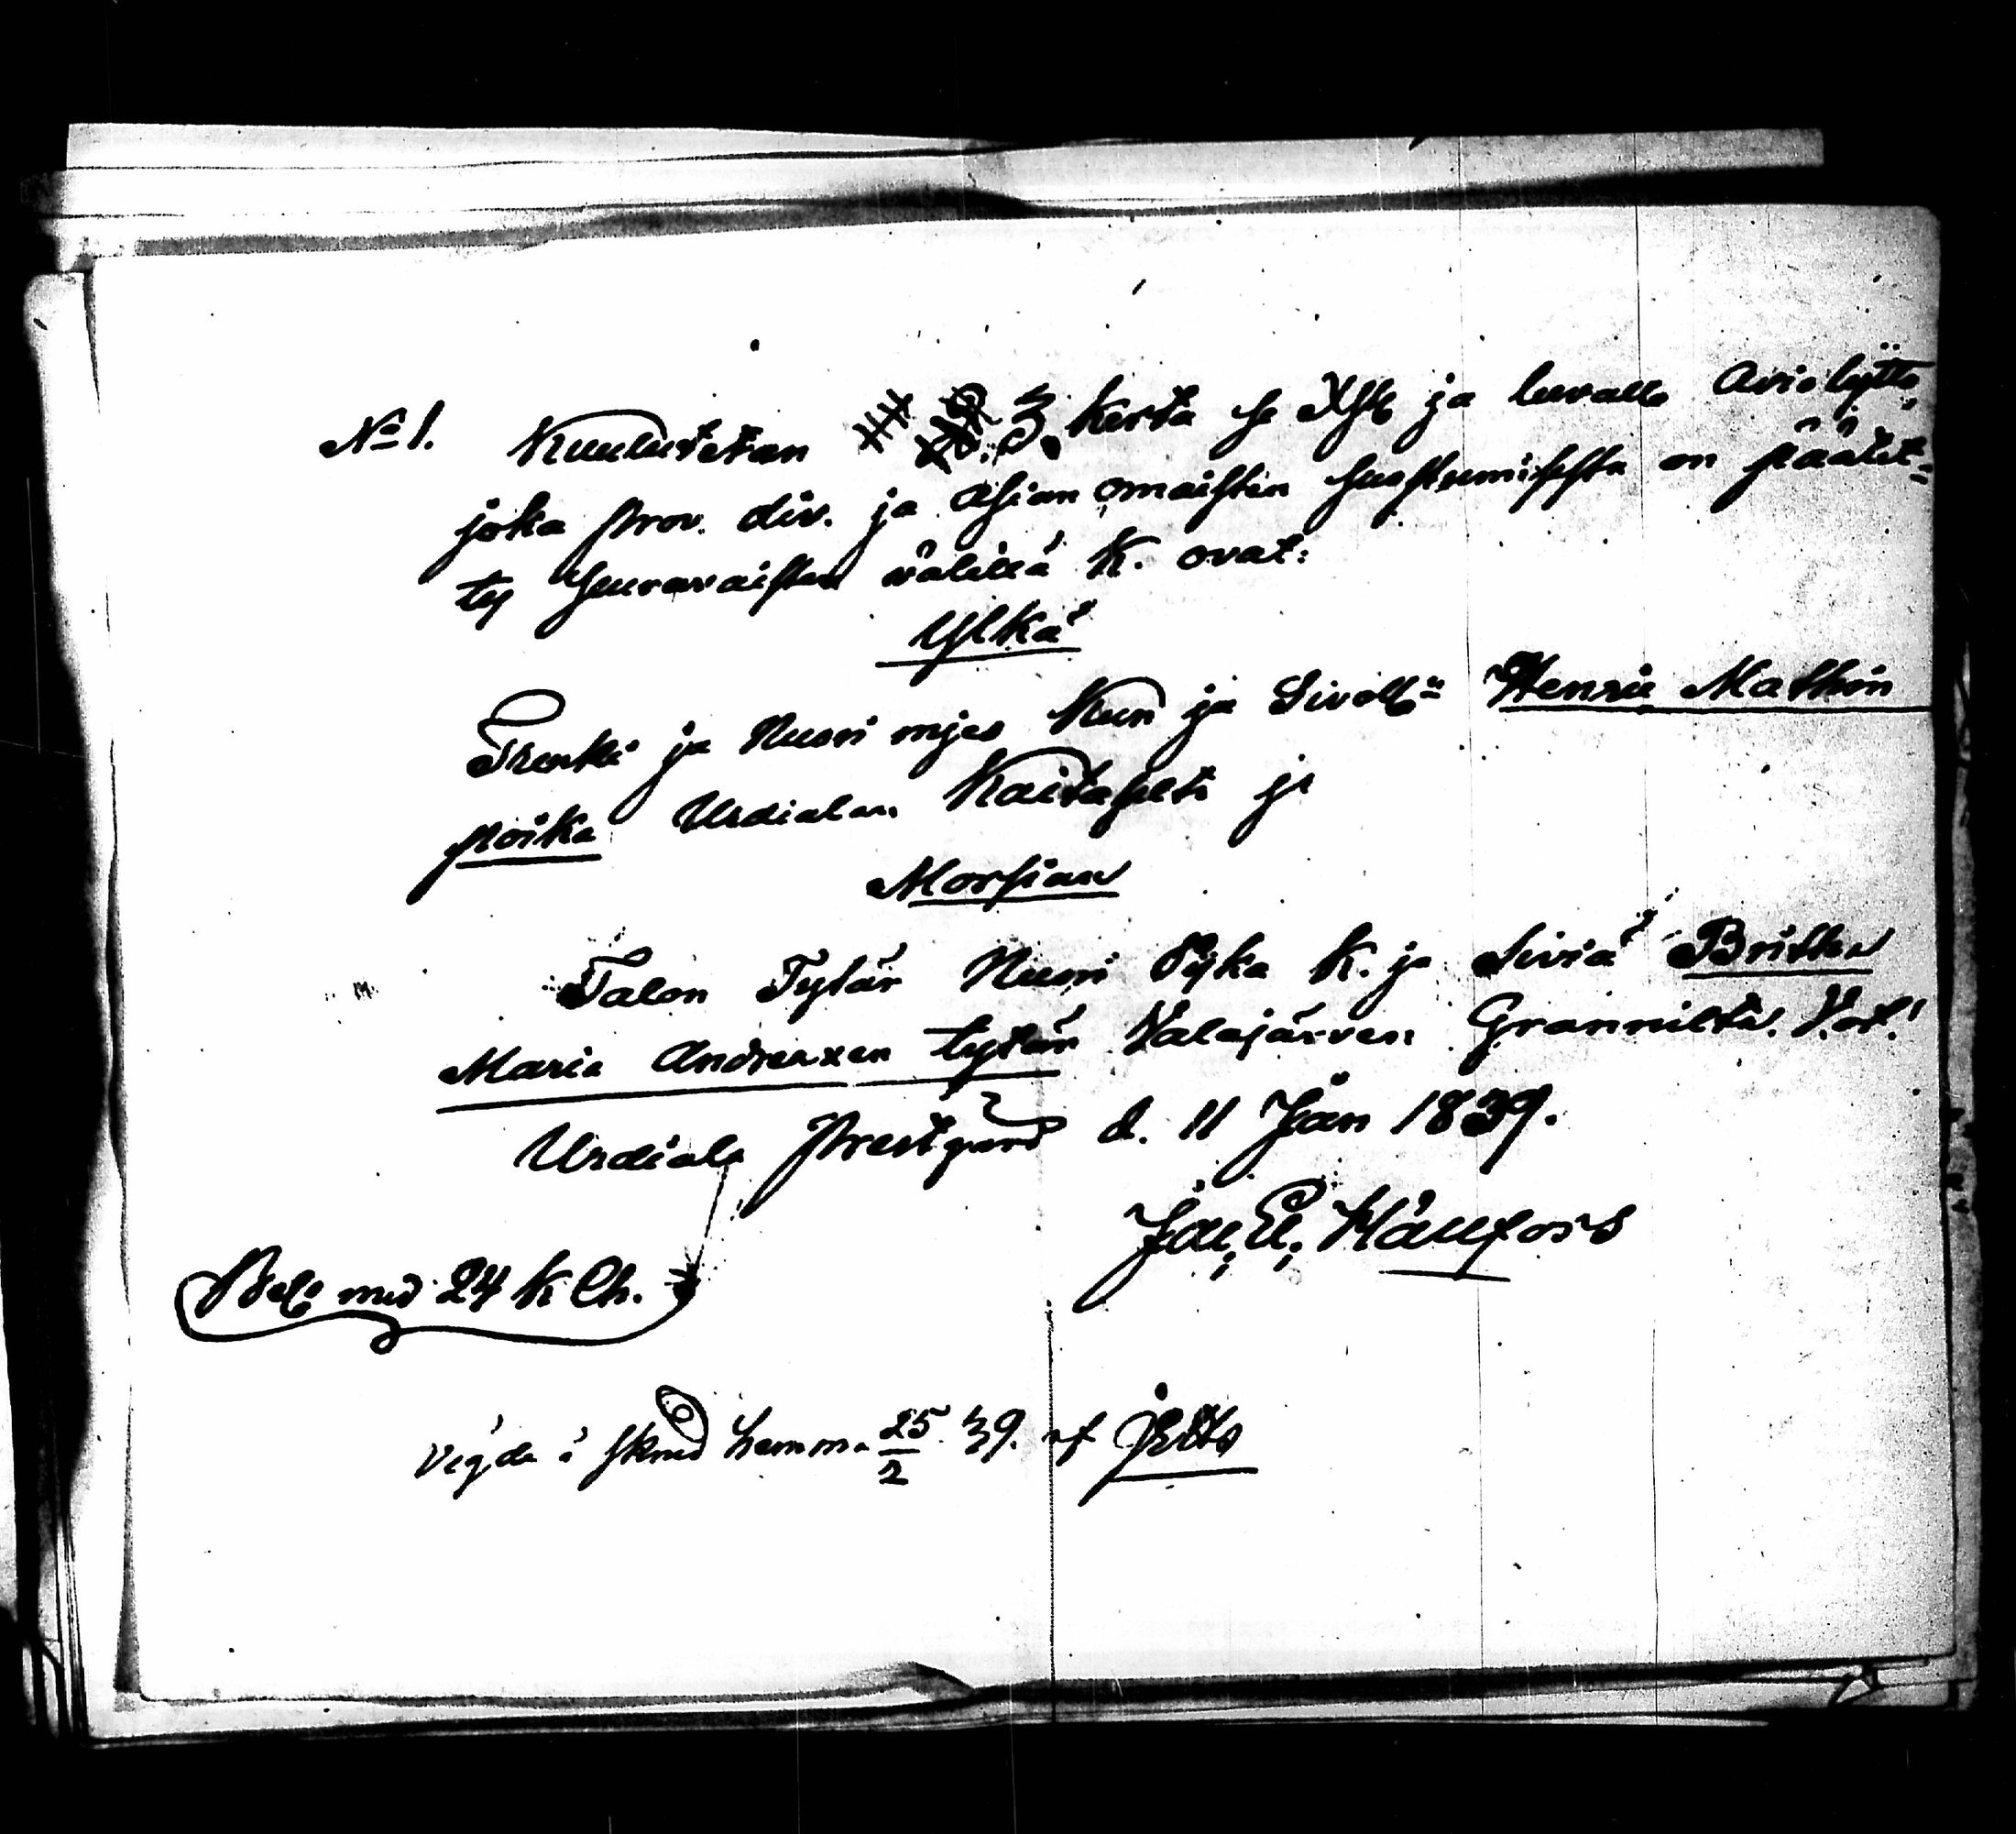 No 1. Kuulutetan 3. kerta se Xstl ja luvallo Aviokytto,
joka prov. div. ja Asian omaisten suostumisesta on päätet=
ty seuravaisten välillä K. ovat:
Ylkä
Trenki ja Nuori mjes Kun ja Sivoll:n Henric Mathin
poika Urdialan Kaitaselta ja
Morsian
Talon Tytär Nuori Pijka K. ja Siviä Britha
Maria Andersxen tytär Kalajärven Grannilta. V.at!
Urdiala Prestgård d. 11 Jan 1839.
Jac. El.
Bel. med 24 K Ch.
Vigda i hemma 25/2 39. af